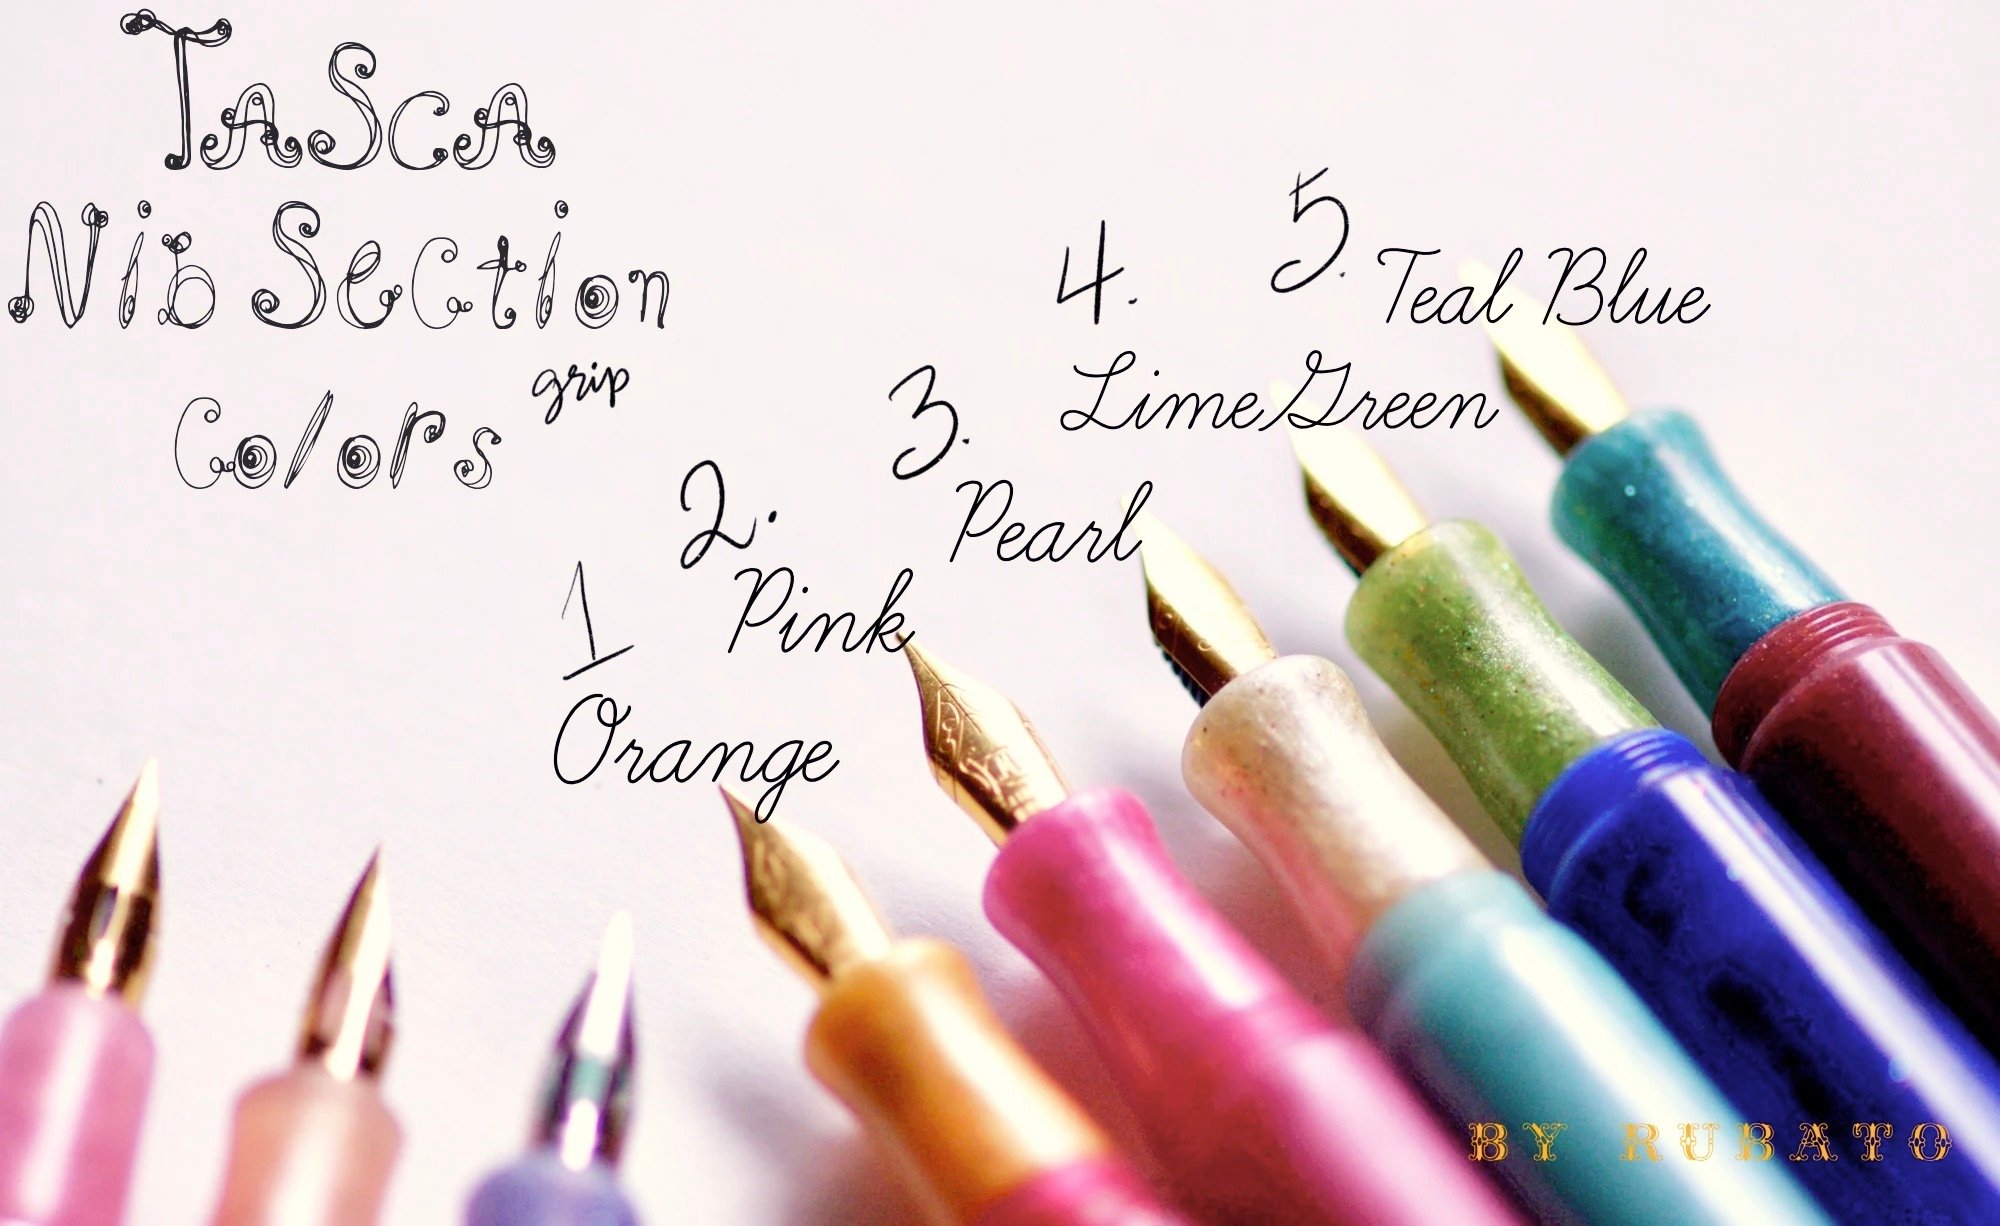 TaScA
Nib Section
Colors
grip
1
Orange
2.
Pink
3.
Pearl
4.
Lime Green
5.
Teal Blue
BY RUBATO